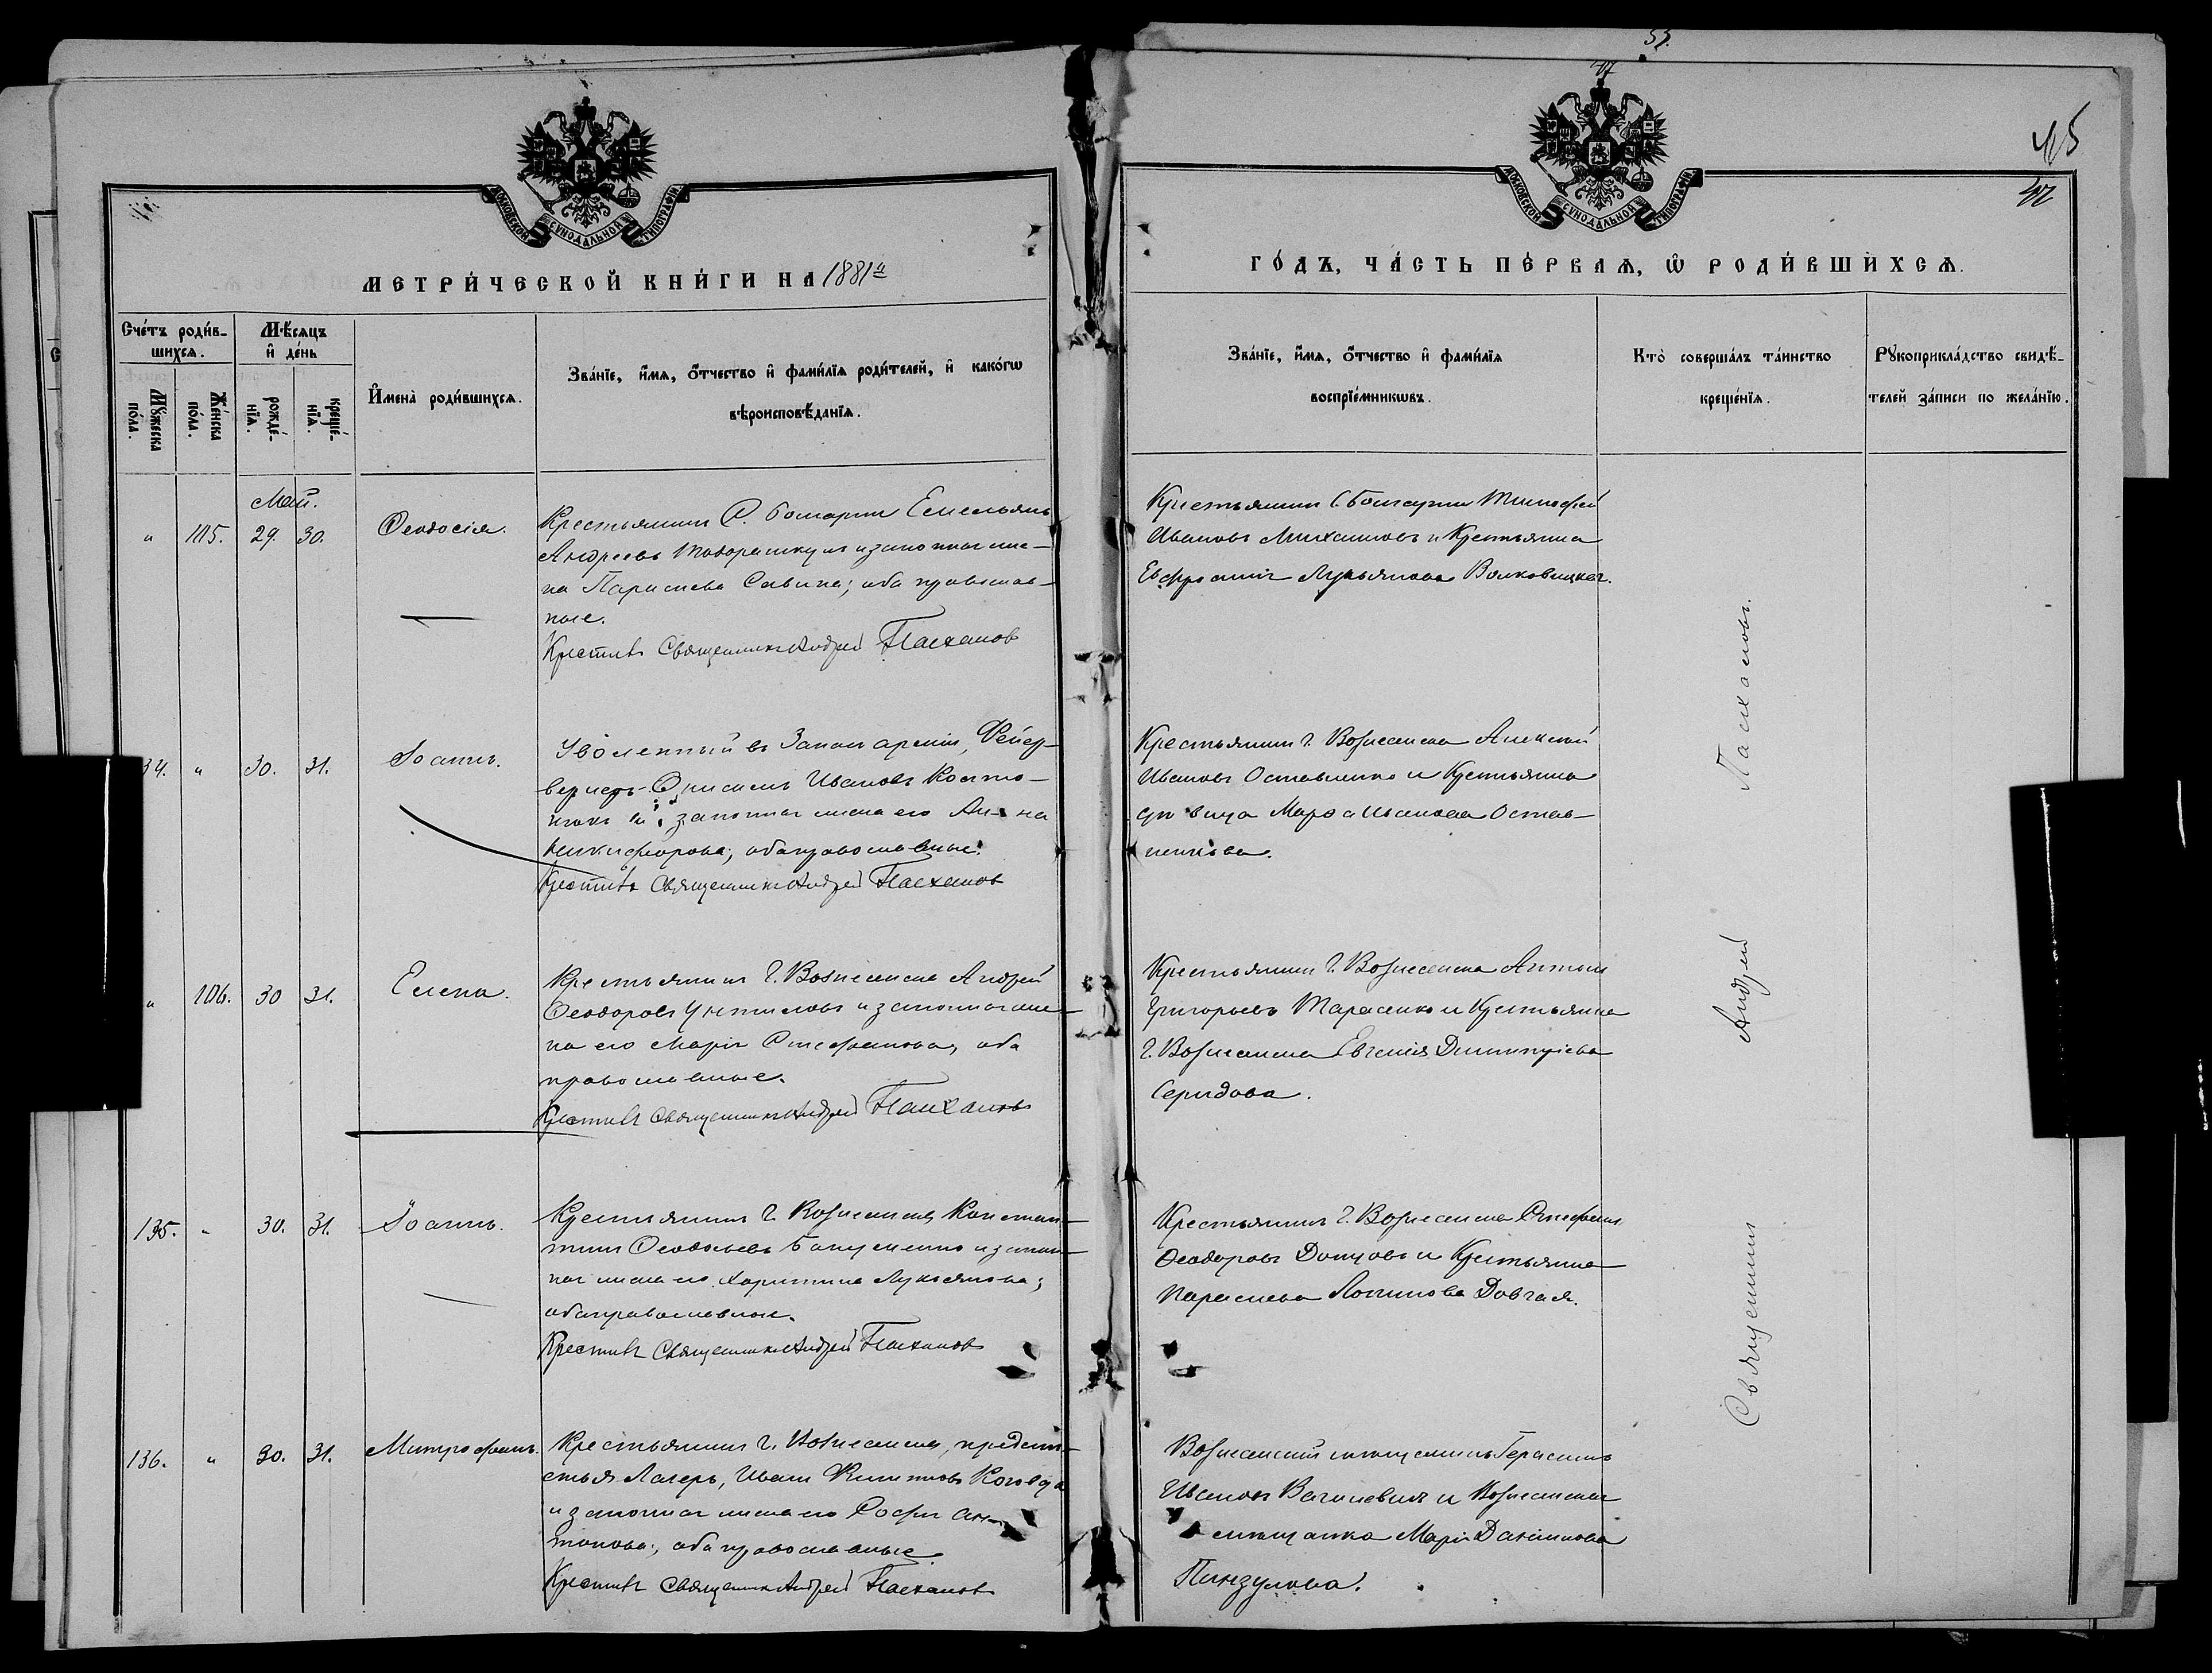 53.
45
42
МОСКОВСКОЙ СУНОДАЛЬНОЙ ТИПОГРАФІИ
МОСКОВСКОЙ СУНОДАЛЬНОЙ ТИПОГРАФІИ
МЕТРИ́ЧЕСКОЙ КНИ́ГИ НА 1881й
ГО́ДЪ, ЧА́СТЬ ПЕ́РВАѦ, Ѿ РОДИ́ВШИХСѦ.
Сче́тъ роди́в-
шихсѧ.
Мꙋ́жеска по́ла.
Же́нска по́ла.
Мѣ́сѧцъ
и҆ де́нь
рожде́-
нїѧ.
креще́-
нїѧ.
И҆мена̀ роди́вшихсѧ.
Зва́нїе, и҆́мѧ, ѻ҆́тчество и҆ фами́лїѧ роди́телей, и҆ како́гѡ
вѣроисповѣ́данїѧ.
Зва́нїе, и҆́мѧ, ѻ҆́тчество и҆ фами́лїѧ
воспрїе́мникѡвъ.
Кто̀ соверша́лъ та́инство
креще́нїѧ.
Рꙋкоприкла́дство свидѣ́-
телей за́писи по жела́нїю.
Май.
" 105. 29. 30.
Ѳеодосія.
Крестьянинъ С. Болгарки Емельянъ
Андреевъ Тодорашку и законная же-
на Параскева Савина; оба православ-
ные.
Крестилъ Священникъ Андрей Пасхаловъ
Крестьянинъ С. Болгарки Тимофей
Ивановъ Михайловъ и Крестьянка
Евфросинія Лукьянова Волковицкая.
34. " 30. 31.
Іоаннъ.
Уволенный въ Запасъ арміи, Фейер-
веркеръ Онисимъ Ивановъ
и законная жена его Анна
Никифорова; оба православные.
Крестилъ Священникъ Андрей Пасхаловъ
Крестьянинъ г. Вознесенска Алексѣй
Ивановъ Оставненко и Крестьянка
Ивановa Остав-
ненкова.
" 106. 30 31.
Елена.
Крестьянинъ г. Вознесенска Андрей
Ѳеодоровъ и законная же-
на его Марія Стефанова, оба
православные.
Крестилъ Священникъ Андрей Пасхаловъ
Крестьянинъ г. Вознесенска Антонъ
Григорьевъ Тарасенко и Крестьянка
г. Вознесенска Евгенія Димитріева
Середова.
135. " 30. 31.
Іоаннъ.
Крестьянинъ г. Вознесенска Констан-
тинъ Ѳеодосьевъ и закон-
ная жена его Харитина Лукьянова;
оба православные.
Крестилъ Священникъ Андрей Пасхаловъ
Крестьянинъ г. Вознесенска Стефанъ
Ѳеодоровъ Донцовъ и Крестьянка
Параскева Логинова Довгая.
136. " 30. 31.
Митрофанъ.
Крестьянинъ г. Вознесенска, предмѣ-
стья Лагерь, Иванъ
и законная жена его Софія Ан-
тонова; оба православные.
Крестилъ Священникъ Андрей Пасхаловъ
Вознесенскій мѣщанинъ Герасимъ
Ивановъ Василевичъ и Вознесенская
мѣщанка Марія Даніилова
Пинзулова.
Священникъ Андрей Пасхаловъ.